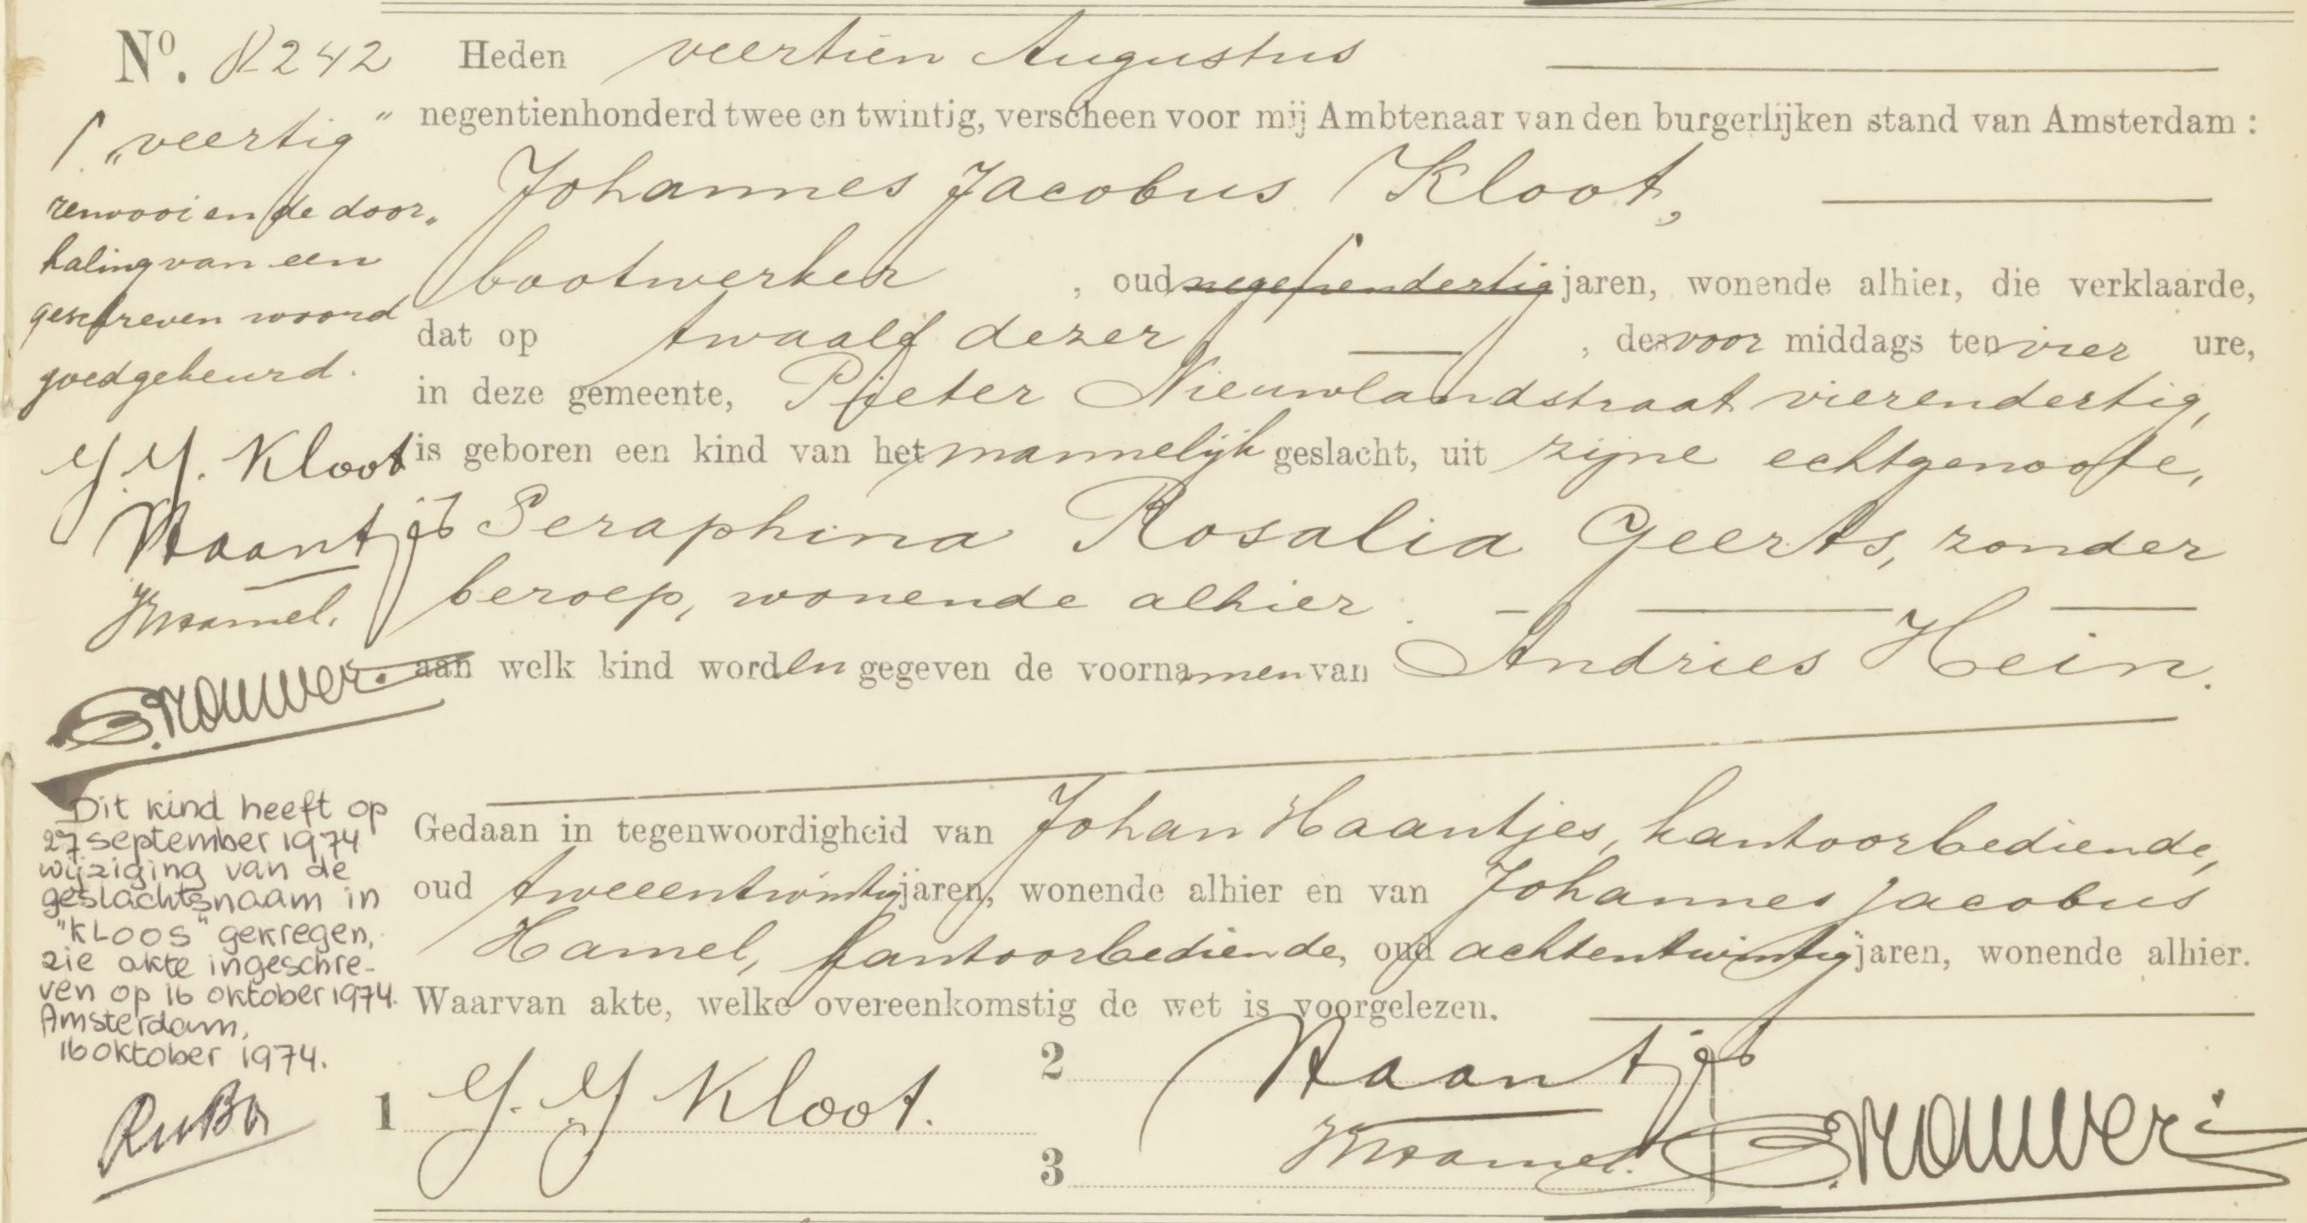 Nº. 8242 Heden veertien Augustus
negentienhonderd twee en twintig, verscheen voor mij Ambtenaar van den burgerlijken stand van Amsterdam :
Johannes Jacobus Kloot,
bootwerker , oud negenendertig jaren, wonende alhier, die verklaarde,
dat op twaalf dezer , des voor middags ten vier ure,
in deze gemeente, Pieter Nieuwlandstraat vierendertig,
is geboren een kind van het mannelijk geslacht, uit zijne echtgenoote,
Seraphina Rosalia Geerts, zonder
beroep, wonende alhier.
aan welk kind worden gegeven de voornamen van Andries Hein.
Gedaan in tegenwoordigheid van Johan Haantjes, kantoorbediende,
oud tweeentwintig jaren, wonende alhier en van Johannes Jacobus
Hamel, kantoorbediende, oud achtentwintig jaren, wonende alhier.
Waarvan akte, welke overeenkomstig de wet is voorgelezen.
1 J. J Kloot.
2 Haantjes
3 JHamel. Brouwer
⌈ „veertig"
renvooi en de door„
haling van een
geschreven woord
goedgekeurd.
J. J. Kloot
Haantjes
JHamel.
Brouwer.
Dit kind heeft op
27 september 1974
wijziging van de
geslachtsnaam in
"KLOOS" gekregen,
zie akte ingeschre-
ven op 16 oktober 1974.
Amsterdam,
16 oktober 1974.